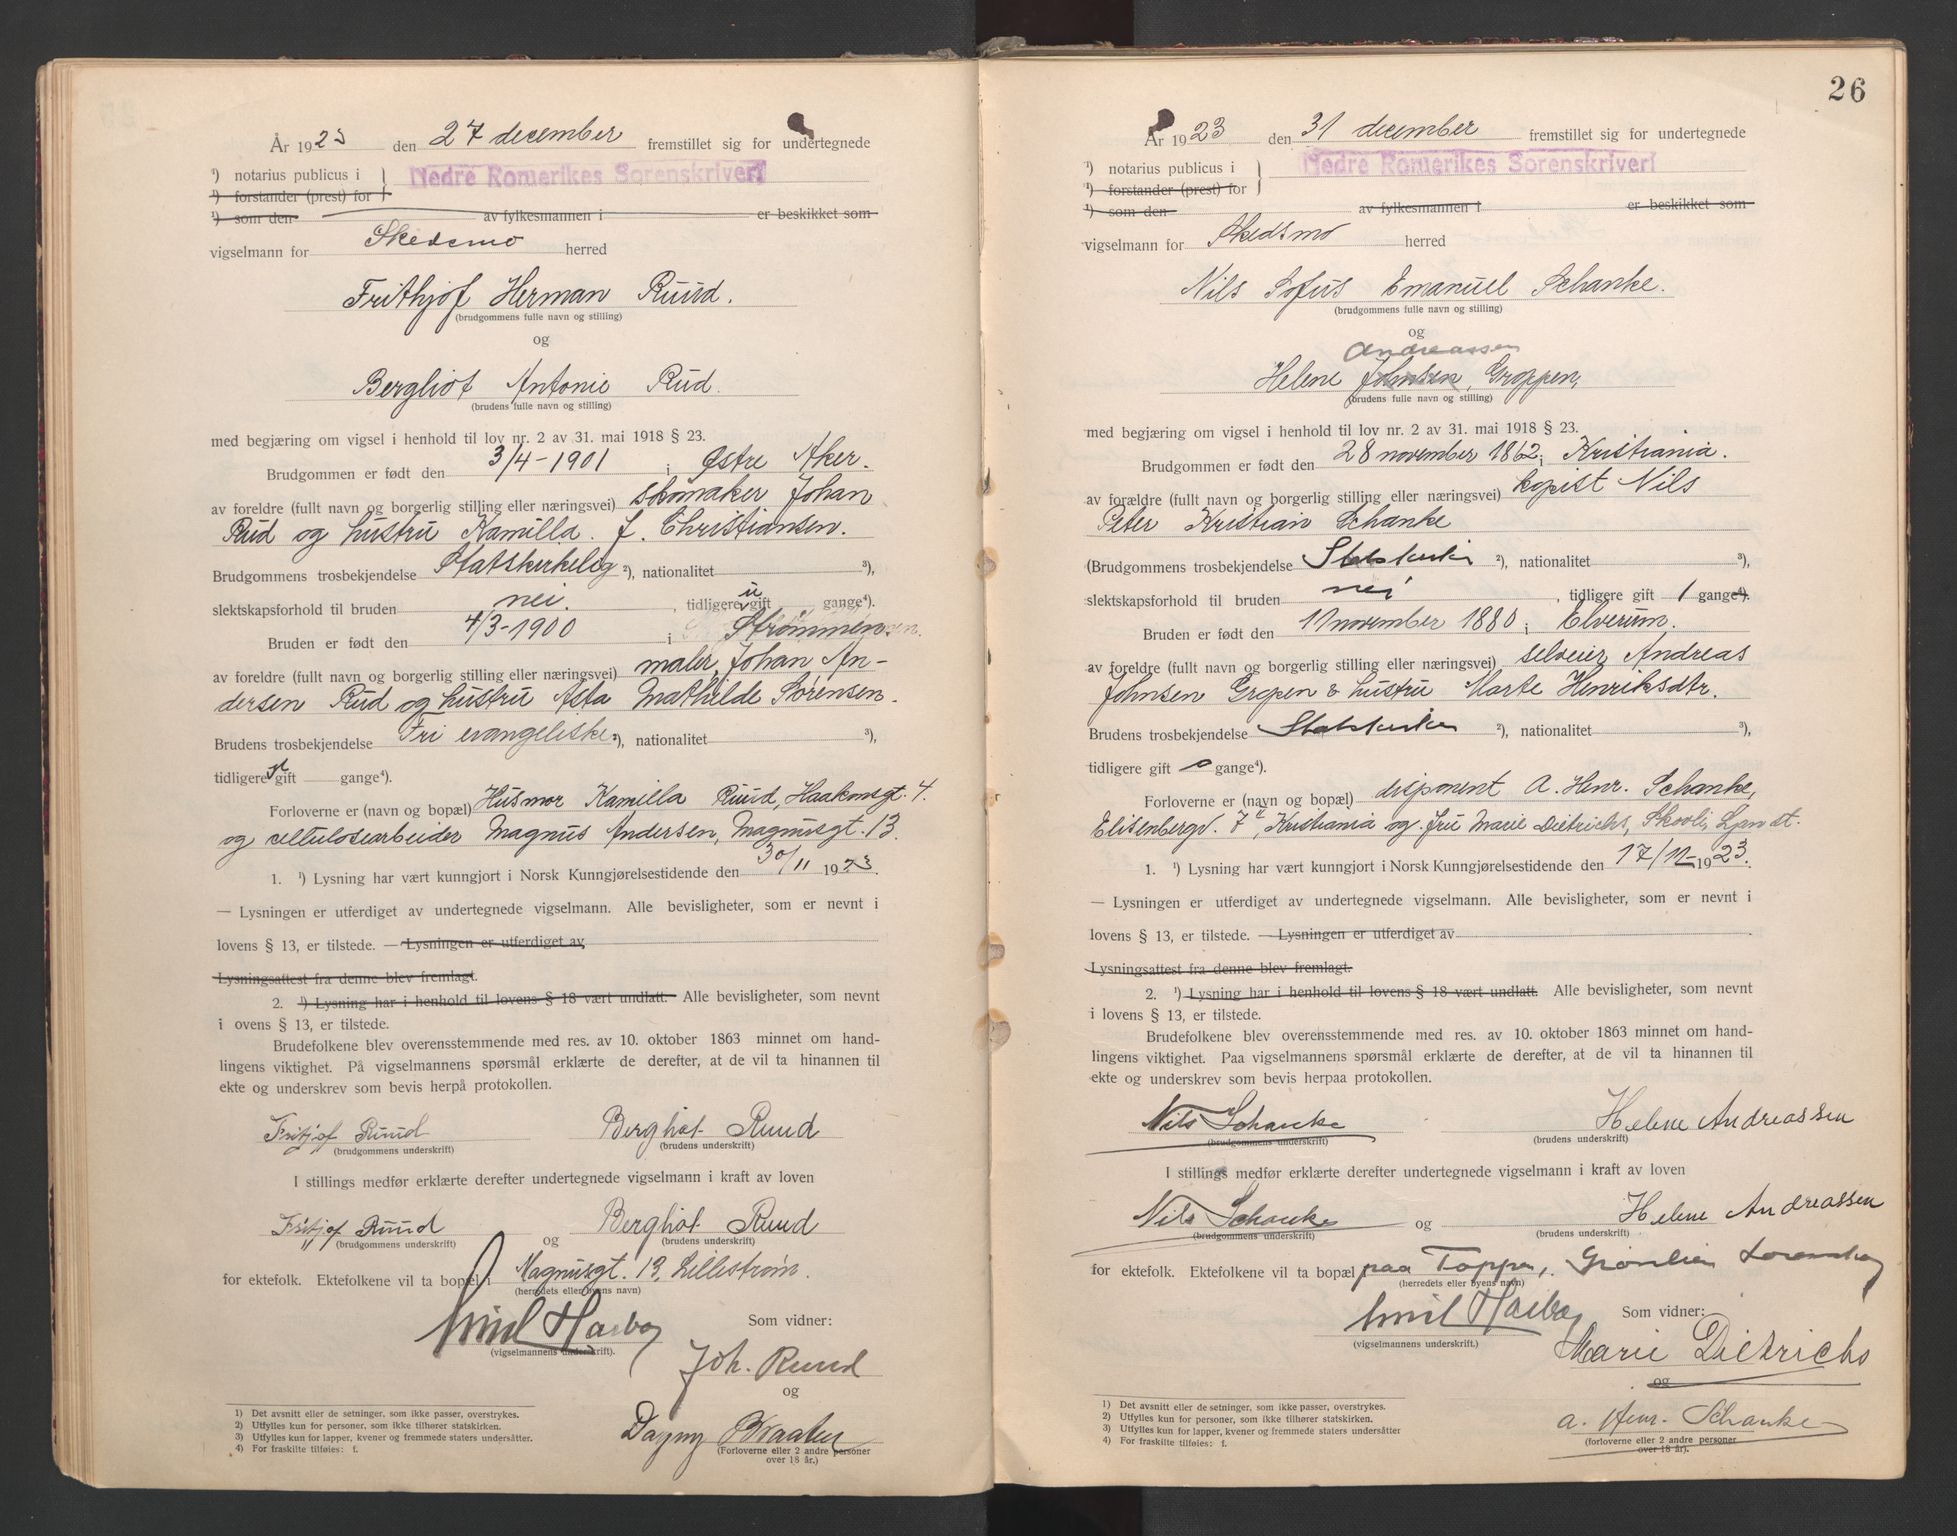 År 1923 den 27 december fremstillet sig for undertegnede
¹) notarius publicus i Nedre Romerikes Sorenskriveri
¹) forstander (prest) for
¹) som den av fylkesmannen i er beskikket som
vigselmann for Skedsmo herred
Frithjof Herman Ruud.
(brudgommens fulle navn og stilling)
og
Bergliot Antonie Rud.
(brudens fulle navn og stilling)
med begjæring om vigsel i henhold til lov nr. 2 av 31. mai 1918 § 23.
Brudgommen er født den 3/4-1901 i Østre Aker.
av foreldre (fullt navn og borgerlig stilling eller næringsvei) skomaker Johan
Rud og hustru Kamilla f. Christiansen.
Brudgommens trosbekjendelse Statskirkelig ²), nationalitet ³),
slektskapsforhold til bruden nei. , tidligere u gift gange⁴).
Bruden er født den 4/3-1900 i Strømmen
av foreldre (fullt navn og borgerlig stilling eller næringsvei) maler Johan An-
dersen Rud og hustru Asta Mathilde Sørensen.
Brudens trosbekjendelse Fri evangeliske ²), nationalitet ³),
tidligere u gift gange⁴).
Forloverne er (navn og bopæl) Husmor Kamilla Ruud, Haakonsgt. 4.
og cellulosearbeider Magnus Andersen, Magnusgt. 13.
1. ¹) Lysning har vært kunngjort i Norsk Kunngjørelsestidende den 30/11 1923.
— Lysningen er utferdiget av undertegnede vigselmann. Alle bevisligheter, som er nevnt i
lovens § 13, er tilstede. — Lysningen er utferdiget av
Lysningsattest fra denne blev fremlagt.
2. ¹) Lysning har i henhold til lovens § 18 vært undlatt. Alle bevisligheter, som nevnt
i ovens § 13, er tilstede.
Brudefolkene blev overensstemmende med res. av 10. oktober 1863 minnet om hand-
lingens viktighet. På vigselmannens spørsmål erklærte de derefter, at de vil ta hinannen til
ekte og underskrev som bevis herpå protokollen.
Fritjof Ruud Bergliot Ruud
(brudgommens underskrift) (brudens underskrift)
I stillings medfør erklærte derefter undertegnede vigselmann i kraft av loven
Fritjof Ruud og Bergliot Ruud
(brudgommens underskrift) (brudens underskrift)
for ektefolk. Ektefolkene vil ta bopæl i Magnusgt. 13, Lillestrøm.
(herredets eller byens navn)
Emil Som vidner:
(vigselmannens underskrift).
Joh. Ruud
og
Dagny Braaten
(Forloverne eller 2 andre personer
over 18 år.)
1) Det avsnitt eller de setninger, som ikke passer, overstrykes.
2) Utfylles kun for personer, som ikke tilhører statskirken.
3) Utfylles kun for lapper, kvener og fremmede staters undersåtter.
4) For fraskilte tilføies: f.
26
År 1923 den 31 december fremstillet sig for undertegnede
¹) notarius publicus i Nedre Romerikes Sorenskriveri
¹) forstander (prest) for
¹) som den av fylkesmannen i er beskikket som
vigselmann for Skedsmo herred
Nils Sofus Emanuel Schanke.
(brudgommens fulle navn og stilling)
og
Andreassen
Helene Johnsen, Groppen,
(brudens fulle navn og stilling)
med begjæring om vigsel i henhold til lov nr. 2 av 31. mai 1918 § 23.
Brudgommen er født den 28 november 1862 i Kristiania.
av forældre (fullt navn og borgerlig stilling eller næringsvei) kopist Nils
Peter Kristian Schanke
(Brudgommens trosbekjendelse Statskirken ²), nationalitet ³),
slektskapsforhold til bruden nei , tidligere gift 1 gange⁴).
Bruden er født den 11 november 1880 i Elverum.
av foreldre (fullt navn og borgerlig stilling eller næringsvei) selveier Andreas
Johnsen Gropen & hustru Marte Henriksdtr.
Brudens trosbekjendelse Statskirken ²), nationalitet ³),
tidligere gift 0 gange⁴).
Forloverne er (navn og bopæl) disponent A. Henr. Schanke,
Elisenbergv. 7, Kristiania og fru Marie Dietrichs, Skovli, Ljan st.
1. ¹) Lysning har vært kunngjort i Norsk Kunngjørelsestidende den 17/11-1923.
— Lysningen er utferdiget av undertegnede vigselmann. Alle bevisligheter, som er nevnt i
lovens § 13, er tilstede. — Lysningen er utferdiget av
Lysningsattest fra denne blev fremlagt.
2. ¹) Lysning har i henhold til lovens § 18 vært undlatt. Alle bevisligheter, som nevnt
i lovens § 13, er tilstede.
Brudefolkene blev overensstemmende med res. av 10. oktober 1863 minnet om hand-
lingens viktighet. Paa vigselmannens spørsmål erklærte de derefter, at de vil ta hinannen til
ekte og underskrev som bevis herpaa protokollen.
Nils Schanke Helene Andreassen
(brudgommens underskrift) (brudens underskrift)
I stillings medfør erklærte derefter undertegnede vigselmann i kraft av loven
Nils Schanke og Helene Andreassen
(brudgommens underskrift) (brudens underskrift)
for ektefolk. Ektefolkene vil ta bopæl paa Toppen, Grønlien Lørenskog
(herredets eller byens navn)
Emil Som vidner:
(vigselmannens underskrift.)
Marie Dietrichs
og
A. Henr. Schanke
(forloverne eller 2 andre personer
over 18 år).
1) Det avsnitt eller de setninger, som ikke passer, overstrykes.
2) Utfylles kun for personer, som ikke tilhører statskirken.
3) Utfylles kun for lapper, kvener og fremmede staters undersåtter
4) For fraskilte tilføies: f.